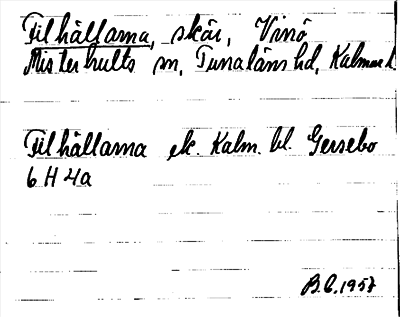 Filhällarna, skär, Vinö
Misterhults sn, Tunaläns hd, Kalmar l
Filhällarna ek. Kalm. bl. Gersebo
6 H 4a
B.C. 1957